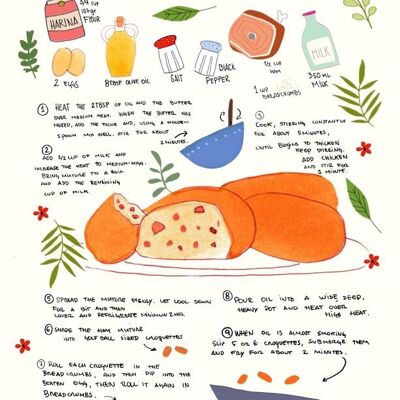 HARINA
3/4 CUP
FLOUR
2 EGGS
8TBSP OLIVE OIL
SALT
BLACK
PEPPER
1/2 CUP
HAM
1 CUP
BREADCRUMBS
MILK
350 ML
MILK
1 HEAT THE 2TBSP OF OIL AND THE BUTTER
OVER MEDIUM HEAT. WHEN THE BUTTER HAS
MELTED, ADD THE FLOUR AND, USING A WOODEN
SPOON MIX WELL. STIR FOR ABOUT
2 MINUTES.
2
ADD 1/2 CUP OF MILK AND
INCREASE THE HEAT TO MEDIUM-HIGH.
BRING MIXTURE TO A BOIL
AND ADD THE REMAINING
CUP OF MILK.
3
COOK, STIRRING CONSTANTLY
FOR ABOUT 5 MINUTES,
UNTIL BEGINS TO THICKEN
KEEP STIRRING.
ADD CHICKEN
AND STIR FOR
1 MINUTE.
5 SPREAD THE MIXTURE EVENLY. LET COOL DOWN
FOR A BIT AND THEN
COVER AND REFRIGERATE MINIMUM 2 HRS.
6 SHAPE THE HAM MIXTURE
INTO GOLF BALL SIZED CROQUETTES
7 ROLL EACH CROQUETTE IN THE
BREADCRUMBS, AND THEN DIP INTO THE
BEATEN EGG, THEN ROLL IT AGAIN IN
BREADCRUMBS.
8 POUR OIL INTO A WIDE, DEEP,
HEAVY POT AND HEAT OVER
HIGH HEAT.
9 WHEN OIL IS ALMOST SMOKING
SLIP 5 OR 6 CROQUETTES, SUBMERGE THEM
AND FRY FOR ABOUT 2 MINUTES.